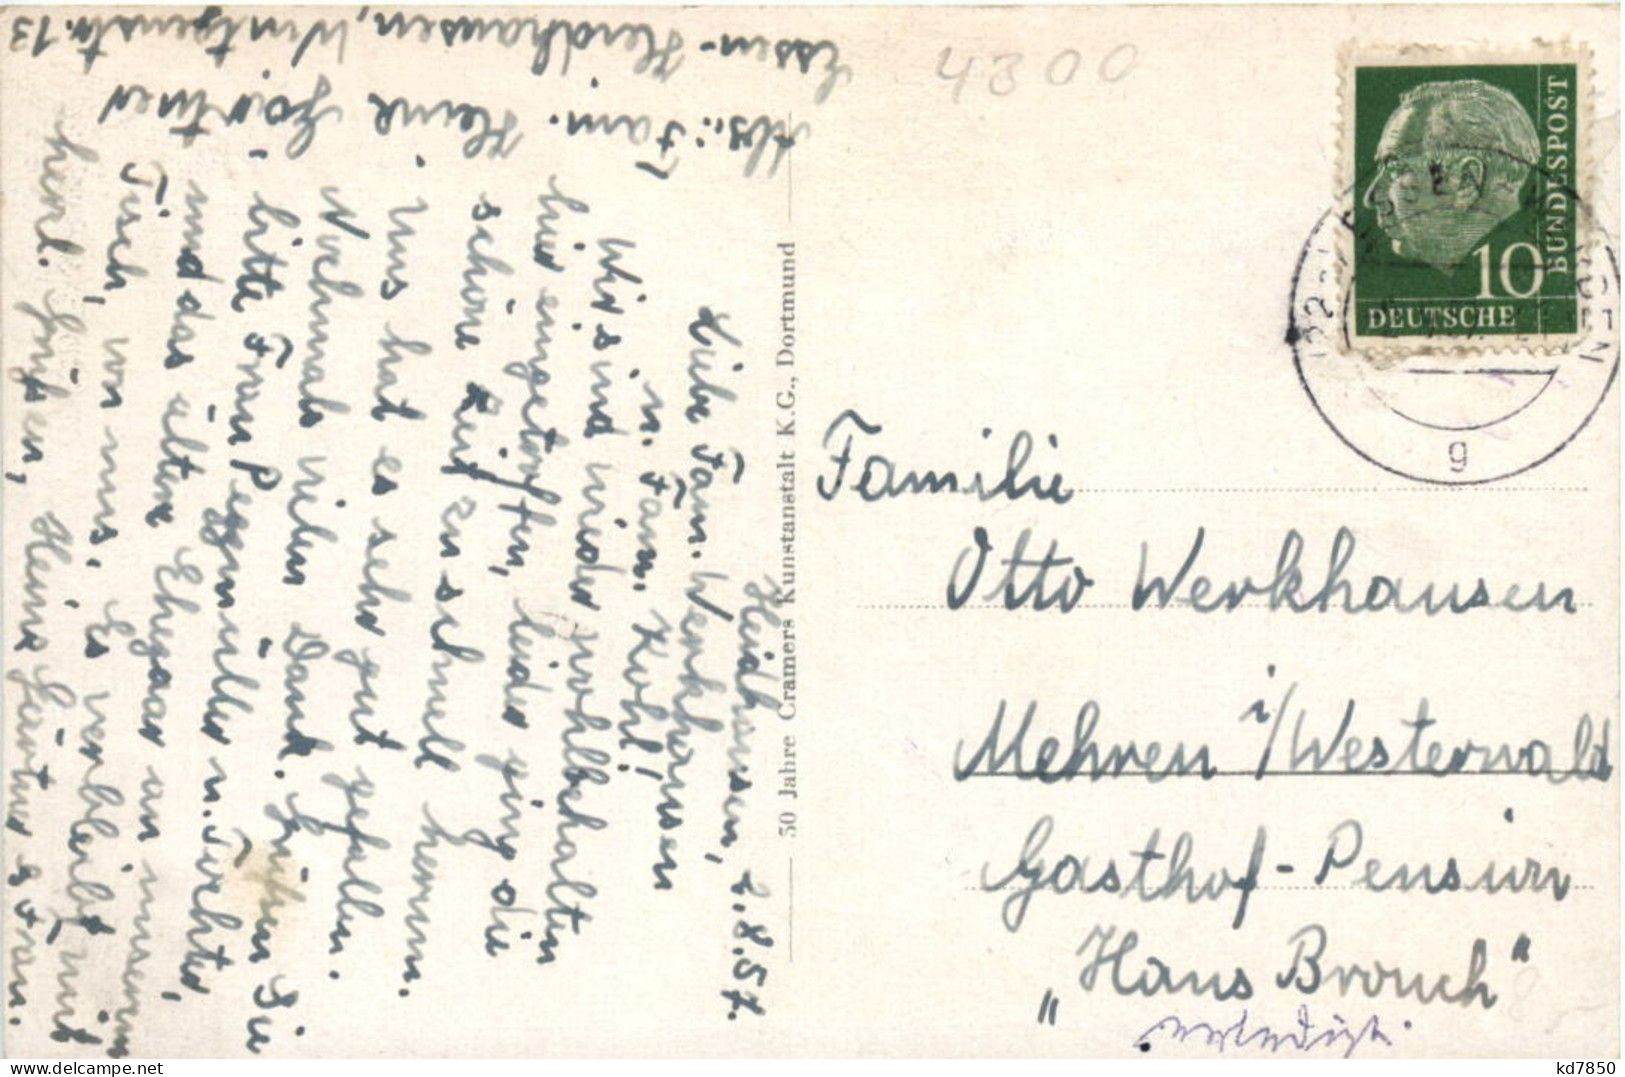 Abs.: Fam. Heinz Gärtner
Essen-Heidhausen, Wintgenstr. 13
Heidhausen, 2.8.57.
Liebe Fam. Werkhausen
u. Fam. Kohl!
Wir sind wieder wohlbehalten
hier eingetroffen, leider ging die
schöne Zeit zu schnell herum.
Uns hat es sehr gut gefallen.
Nochmals vielen Dank. Grüßen Sie
bitte Frau Pegmüller u. Tochter,
und das ältere Ehepaar an unserem
Tisch, von uns. Es verbleibt mit
herzl. Grüßen, Heinz Gärtner u. Frau.
50 Jahre Cramers Kunstanstalt K.G., Dortmund
4300
BUNDESPOST
10
DEUTSCHE
ESSEN
g
Familie
Otto Werkhausen
Mehren i/Westerwald
Gasthof-Pension
„Hans Brouch"
erledigt.
kd7850